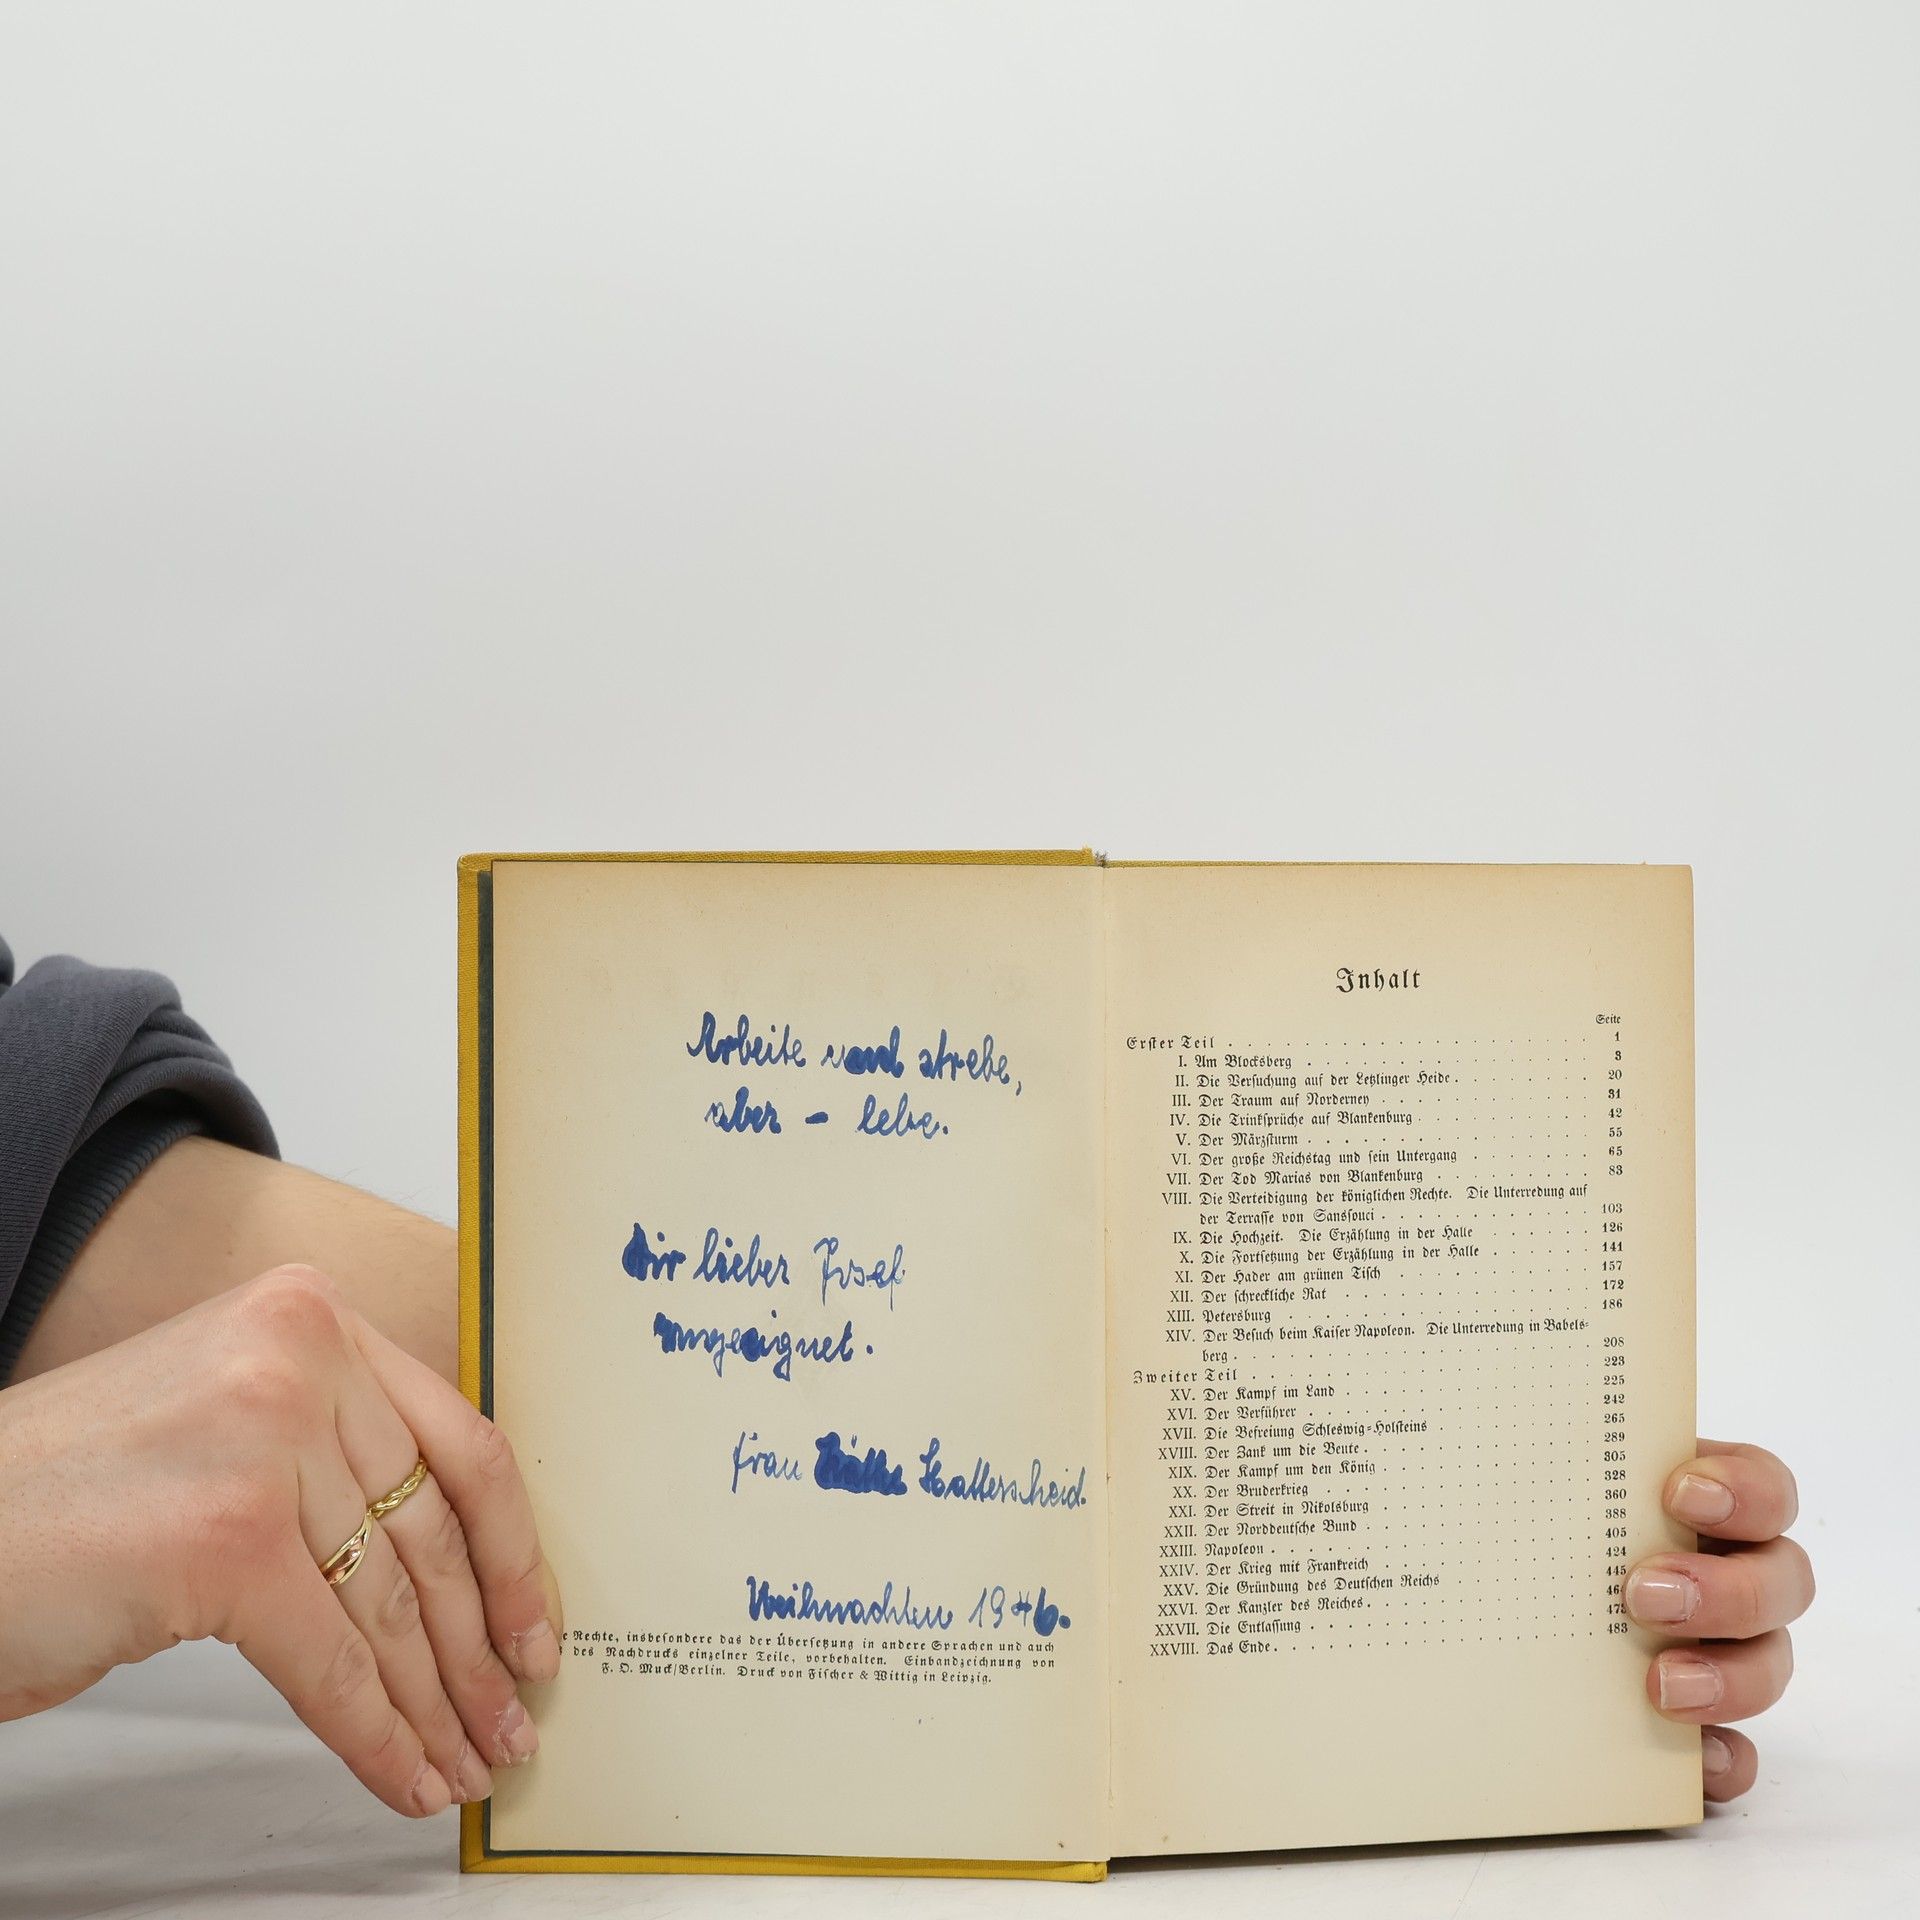 Arbeite und strebe,
aber – lebe.
Dir lieber Josef
zugeeignet.
Frau Käthe Hatterscheid.
Weihnachten 1946.
e Rechte, insbesondere das der Übersetzung in andere Sprachen und auch
des Nachdrucks einzelner Teile, vorbehalten. Einbandzeichnung von
F. O. Muck/Berlin. Druck von Fischer & Wittig in Leipzig.
Inhalt
Seite
Erster Teil . . . 1
I. Am Blocksberg . . . 3
II. Die Versuchung auf der Letzlinger Heide . . . 20
III. Der Traum auf Norderney . . . 31
IV. Die Trinksprüche auf Blankenburg . . . 42
V. Der Märzsturm . . . 55
VI. Der große Reichstag und sein Untergang . . . 65
VII. Der Tod Marias von Blankenburg . . . 83
VIII. Die Verteidigung der königlichen Rechte. Die Unterredung auf
der Terrasse von Sanssouci . . . 103
IX. Die Hochzeit. Die Erzählung in der Halle . . . 126
X. Die Fortsetzung der Erzählung in der Halle . . . 141
XI. Der Hader am grünen Tisch . . . 157
XII. Der schreckliche Rat . . . 172
XIII. Petersburg . . . 186
XIV. Der Besuch beim Kaiser Napoleon. Die Unterredung in Babels-
berg . . . 208
Zweiter Teil . . . 223
XV. Der Kampf im Land . . . 225
XVI. Der Verführer . . . 242
XVII. Die Befreiung Schleswig-Holsteins . . . 265
XVIII. Der Zank um die Beute . . . 289
XIX. Der Kampf um den König . . . 305
XX. Der Bruderkrieg . . . 328
XXI. Der Streit in Nikolsburg . . . 360
XXII. Der Norddeutsche Bund . . . 388
XXIII. Napoleon . . . 405
XXIV. Der Krieg mit Frankreich . . . 424
XXV. Die Gründung des Deutschen Reichs . . . 445
XXVI. Der Kanzler des Reiches . . . 464
XXVII. Die Entlassung . . . 473
XXVIII. Das Ende . . . 483